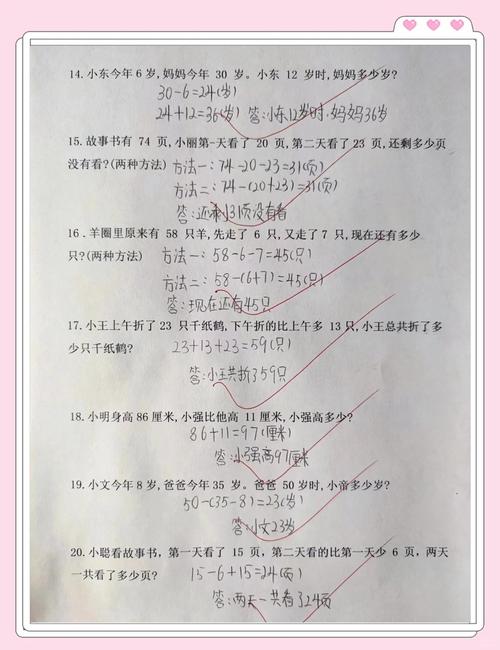 14.小东今年6岁,妈妈今年 30 岁。小东 12 岁时,妈妈多少岁?
30-6=24(岁)
24+12=36(岁) 答:小东12岁时,妈妈36岁
15.故事书有 74 页,小丽第-天看了 20 页,第二天看了 23 页,还剩多少页
没有看?(两种方法) 方法一:74-20-23=31(页)
方法二:74-(20+23)=31(页)
答:还剩31页没有看
16.羊圈里原来有 58 只羊,先走了 6 只,又走了 7 只,现在还有多少
只?(两种方法) 方法一:58-6-7=45(只)
方法二:58-(6+7)=45(只)
答:现在还有45只
17.小王上午折了 23 只千纸鹤,下午折的比上午多 13只,小王总共折了多
少只千纸鹤? 23+13+23=59(只)
答:小王共折了59只
18.小明身高 86 厘米,小强比他高 11 厘米,小强高多少?
86+11=97(厘米)
答:小强高97厘米
19.小文今年8岁,爸爸今年35 岁。爸爸 50岁时,小帝多少岁?
50-(35-8)=23(岁)
答:小文23岁
20.小聪看故事书,第一天看了 15 页,第二天看的比第一天少 6 页,两天
一共看了多少页? 15-6+15=24(页)
答:两天一共看了24页